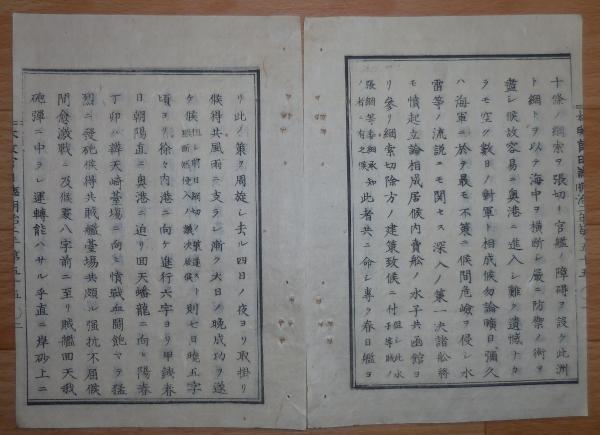 十條ノ綱索ヲ張切リ官艦ノ障碍ヲ設ケ此洲
ト綱トヲ以テ海中ヲ横断シ嚴ニ防禦ノ術ヲ
盡シ候故容易ニ奥港ニ進入シ難ク遺憾ナカ
ラモ空ク數日ノ對軍ト相成候勿論曠日彌久
ハ海軍ニ於テ最モ不策ニ候間危嶮ヲ侵シ水
雷等ノ流説ニモ関セス深入ノ策一決諸舩將
モ憤起立論相成居候内賣舩ノ水子共函館ヨ
リ參リ綱索切除方ノ建策致候ニ付
張綱等委細承知
ノ者ニ有之候
此者共ニ命シ專ラ春日艦ヨ
リ此ノ策ク周旋シ去ル四日ノ夜ヨリ取掛リ
候得共風雨ニ支ラレ漸ク大日ノ晩成功ヲ遂
ケ候
則七日曉五字
頃ヨリ徐々内港ニ向ケ進行六字ヨリ甲鉄春
日朝陽直ニ奥港ニ迫リ回天蟠龍ニ向ヒ陽春
丁卯ハ辨天崎臺場ニ向ヒ憤戦血闘飽マテ猛
烈ニ發砲候得共賊艦臺場共頗ル强抗不屈候
間愈激戦ニ及候裏八字前ニ至リ賊艦回天我
砲彈ニ中ラレ運轉能ハサル乎直ニ岸砂上ニ